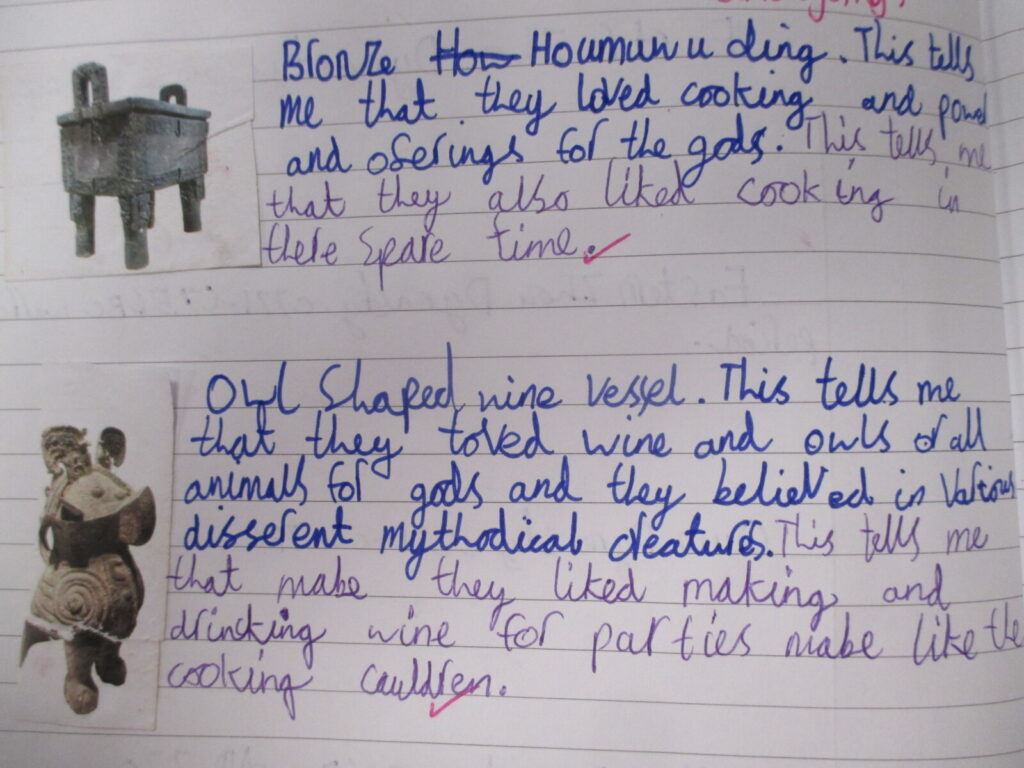 Bronze How Houmuwu ding. This tells
me that they loved cooking and
and oferings for the gods. This tells me
that they also liked cooking in
there spare time.
Owl Shaped wine vessel. This tells me
that they loved wine and owls of all
animals for gods and they believed in various
disserent mythodical creatures. This tells me
that mabe they liked making and
drincking wine for parties mabe like the
cooking cauldren.